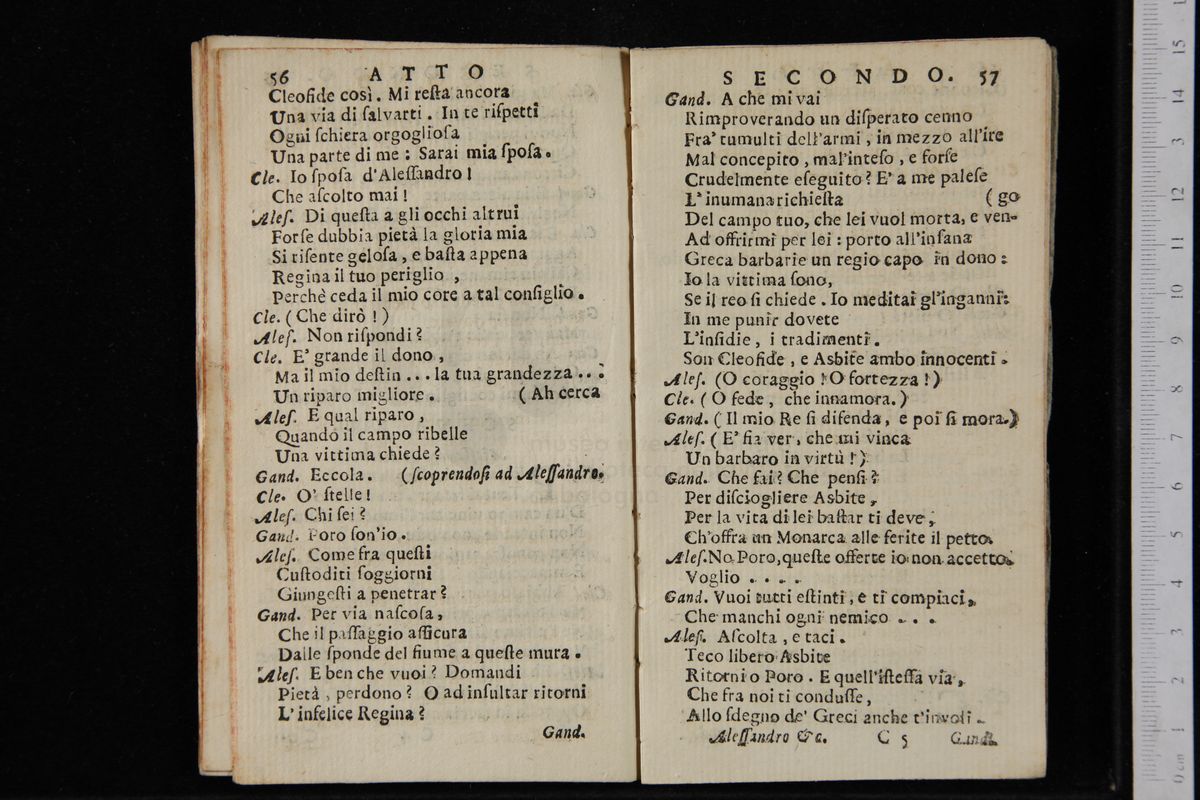 56 ATTO
Cleoſide così. Mi reſta ancora
Una via di ſalvarti. In te riſpetti
Ogni ſchiera orgoglioſa
Una parte di me: Sarai mia ſpoſa.
Cle. Io ſpoſa d'Aleſſandro!
Che aſcolto mai!
Aleſ. Di queſta a gli occhi altrui
Forſe dubbia pietà la gloria mia
Si riſente geloſa, e baſta appena
Regina il tuo periglio,
Perchè ceda il mio core a tal conſiglio.
Cle. (Che dirò!)
Aleſ. Non riſpondi?
Cle. E' grande il dono,
Ma il mio deſtin... la tua grandezza...
Un riparo migliore. (Ah cerca
Aleſ. E qual riparo,
Quando il campo ribelle
Una vittima chiede?
Gand. Eccola. (ſcoprendoſi ad Aleſſandro.
Cle. O' ſtelle!
Aleſ. Chi ſei?
Gand. Poro ſon'io.
Aleſ. Come fra queſti
Cuſtoditi ſoggiorni
Giungeſti a penetrar?
Gand. Per via naſcoſa,
Che il paſſaggio aſſicura
Dalle ſponde del fiume a queſte mura.
Aleſ. E ben che vuoi? Domandi
Pietà, perdono? O ad inſultar ritorni
L'infelice Regina?
Gand.
SECONDO. 57
Gand. A che mi vai
Rimproverando un diſperato cenno
Fra' tumulti dell'armi, in mezzo all'ire
Mal concepito, mal'inteſo, e forſe
Crudelmente eſeguito? E' a me paleſe
L'inumana richieſta (go
Del campo tuo, che lei vuol morta, e ven-
Ad offrirmi per lei: porto all'inſana
Greca barbarie un regio capo in dono:
Io la vittima ſono,
Se il reo ſi chiede. Io meditai gl'inganni:
In me punir dovete
L'inſidie, i tradimenti.
Son Cleofide, e Asbite ambo innocenti.
Aleſ. (O coraggio! O fortezza!)
Cle. (O fede, che innamora.)
Gand. (Il mio Re ſi difenda, e poi ſi mora.)
Aleſ. (E' fia ver, che mi vinca
Un barbaro in virtù!)
Gand. Che fai? Che penſi?
Per diſciogliere Asbite,
Per la vita di lei baſtar ti deve,
Ch'offra un Monarca alle ferite il petto.
Aleſ. No, Poro, queſte offerte io non accetto.
Voglio....
Gand. Vuoi tutti eſtinti, e ti compiaci,
Che manchi ogni nemico...
Aleſ. Aſcolta, e taci.
Teco libero Asbite
Ritorni o Poro. E quell'iſteſſa via,
Che fra noi ti conduſſe,
Allo ſdegno de' Greci anche t'involi.
Aleſſandro &c. C 5 Gand.